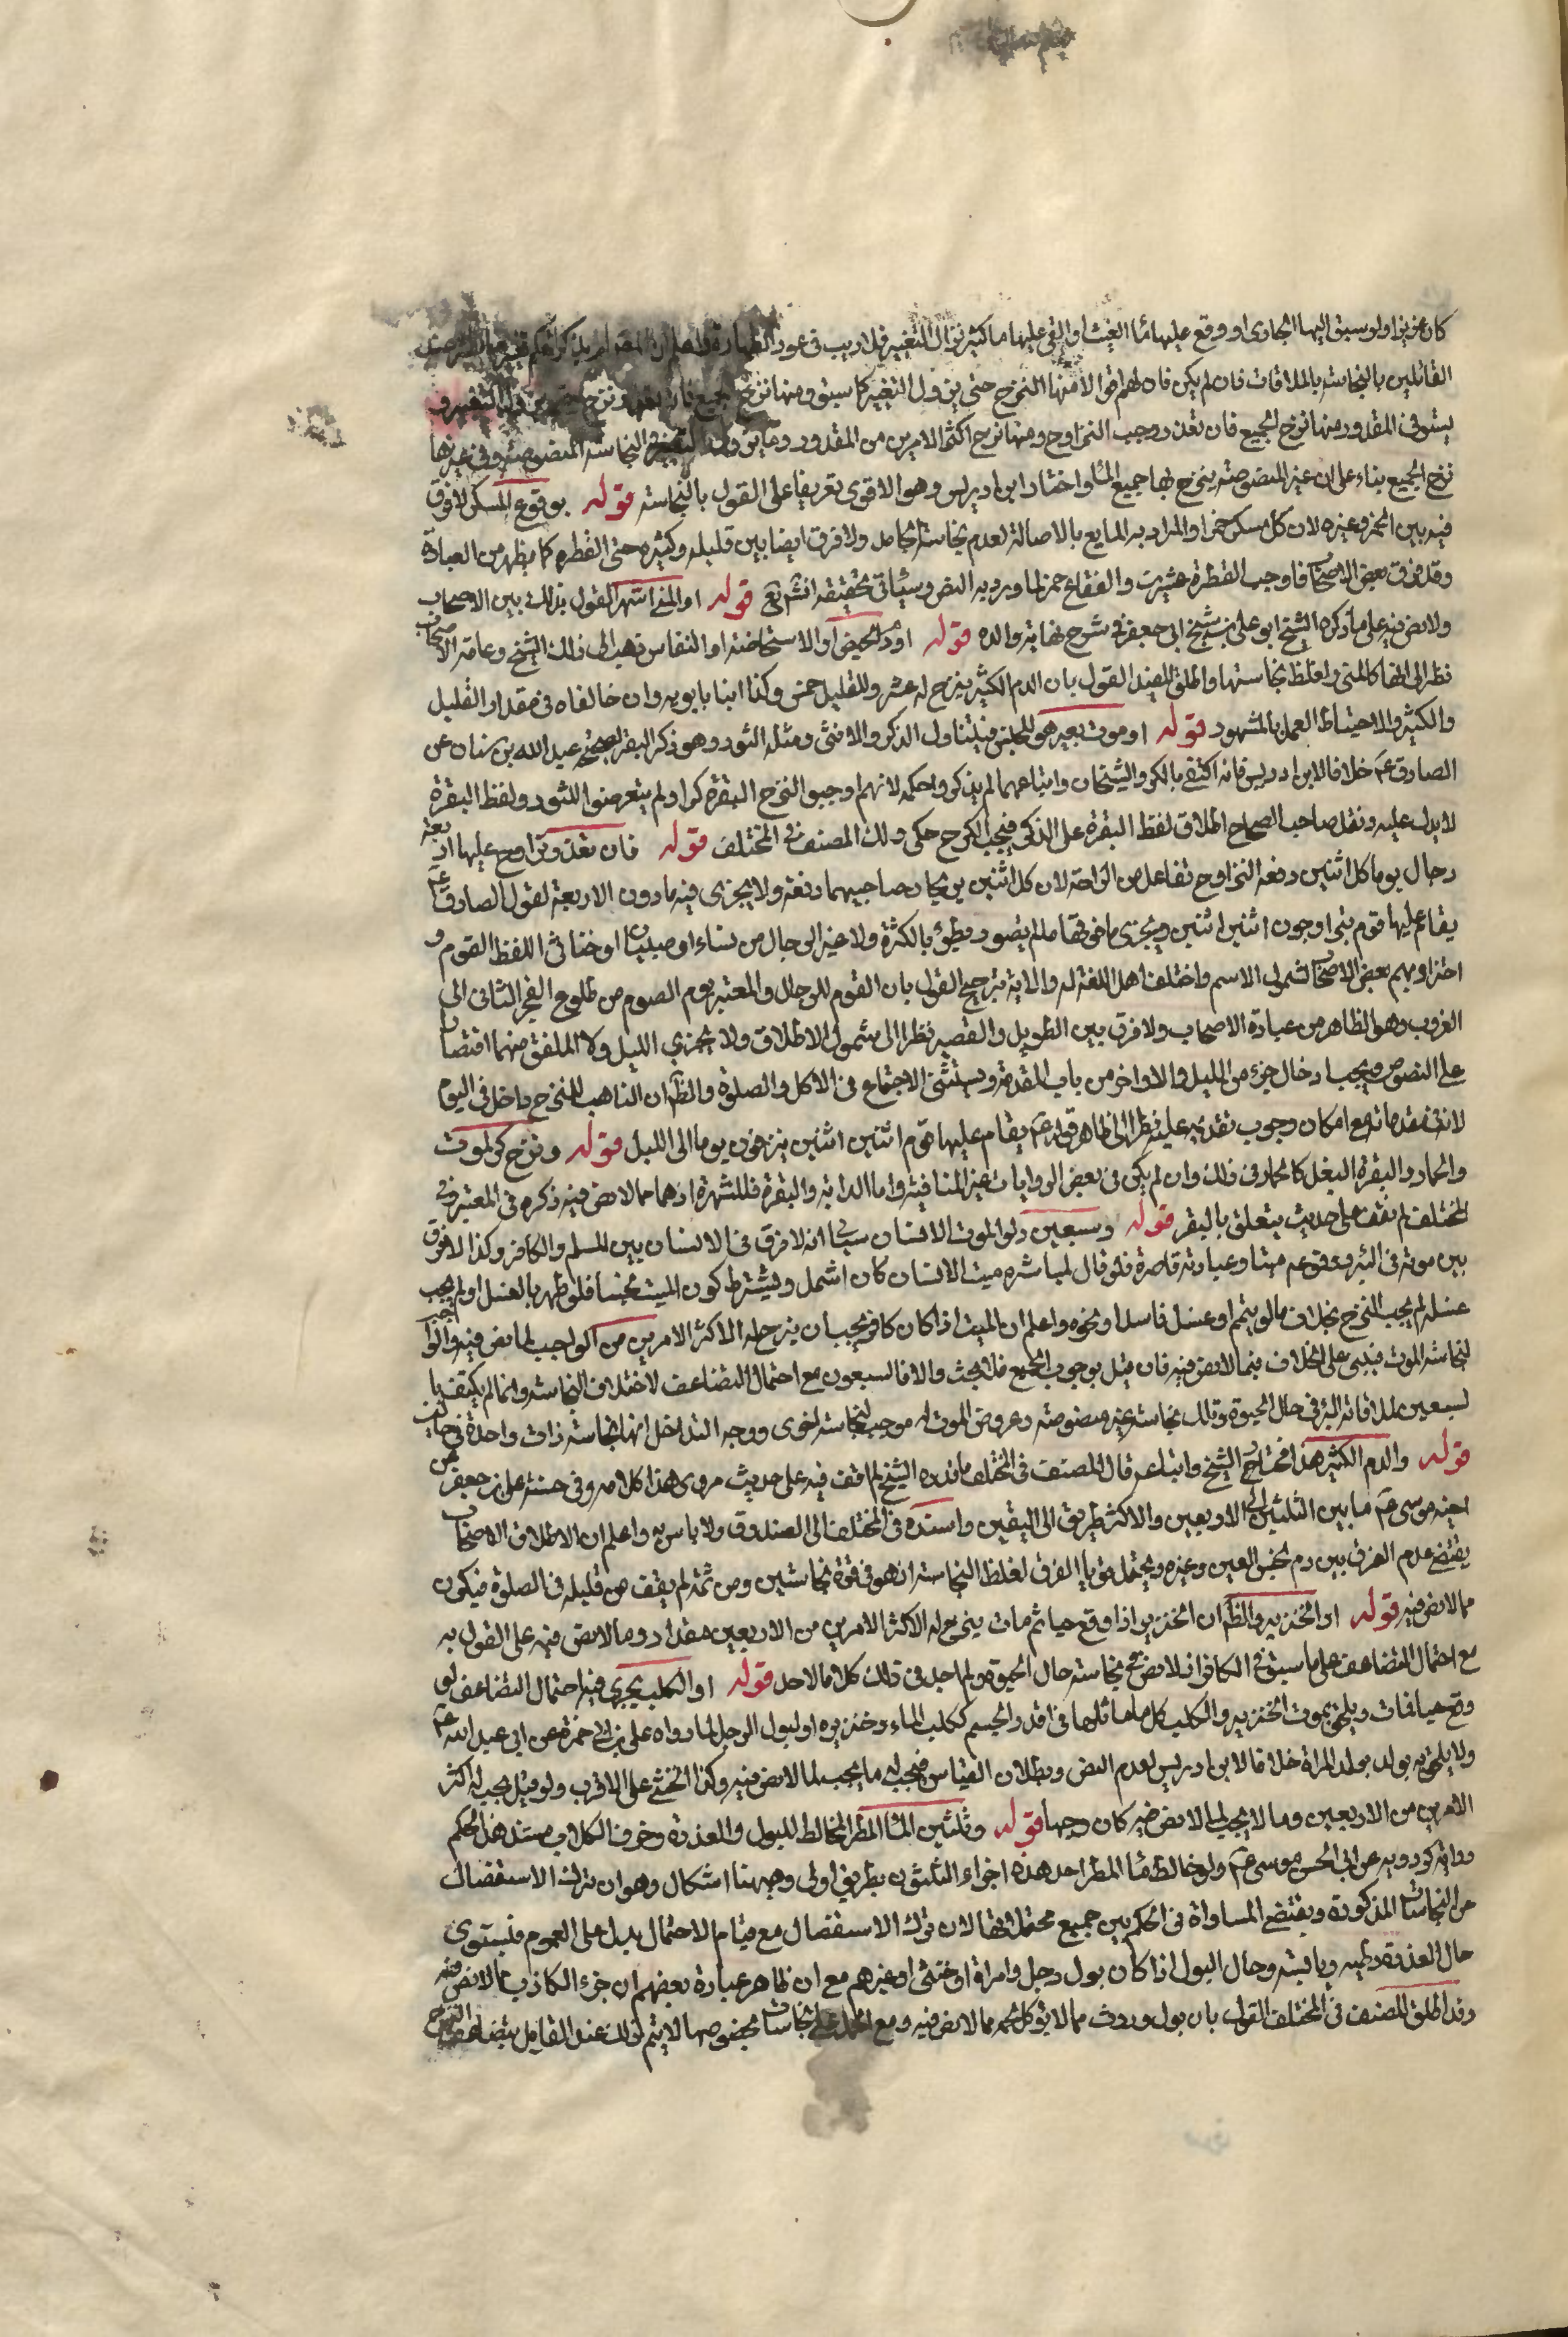 كان غزيرا ولو سيق اليها الجاري او وقع عليها ماء الغيث او القي عليها ما كثير فزال التغيير فلا ريب في عود الطهارة واعلم ان المصنف لم يذكر حكم تغير
القائلين بالنجاسة بالملاقات فان لم يكن فان لهم اقوالا منها النزح حتى يزول التغير كما سبق ومنها نزح الجميع فان تعذر نزح حتى يزول التغير و
يستوفى المقدر ومنها نزح الجميع فان تعذر وجب التراوح ومنها نزح اكثر الامرين من المقدور وما يزول به التغير في النجاسة المنصوصة وفي غيرها
نزح الجميع بناء على ان غير المنصوصة ينزح لها جميع الماء واختار ابن ادريس وهو الاقوى تفريعا على القول بالنجاسة قوله بوقوع المسكر لا فرق
فيه بين الخمر وغيره لان كل مسكر خمر او المراد به المايع بالاصالة لعدم نجاسة الجامد ولا فرق ايضا بين قليله وكثيره حتى القطرة كما يظهر من العبادة
وقد فرق بعض الاصحاب فاوجب القطرة عشرين والفقاع خمر لما ورد به النص وسيأتي تحقيقه انش تع قوله او المني اشتهر القول بذلك بين الاصحاب
ولا نص فيه على ما ذكره الشيخ ابو علي بن شيخ ابي جعفر في شرح نهاية والده قوله او دم الحيض او الاستحاضة او النفاس ذهب الى ذلك الشيخ وعامة الاصحاب
نظرا الى انها كالمني واغلظ نجاستها واطلق المفيد القول بان الدم الكثير ينزح له عشر وللقليل خمس وكذا ابنا بابويه وان خالفاه في مقدار القليل
والكثير والاحتياط العمل بالمشهور قوله او موت بعير هو للجنس فيتناول الذكر والانثى ومثله الثور وهو ذكر البقر لصحيحة عبد الله بن سنان عن
الصادق عم خلافا لابن ادريس فانه اكتفى بالكر والشيخان واتباعهما لم يذكروا حكمه لانهم اوجبوا لنزح البقرة كرا ولم يتعرضوا للثور ولفظ البقرة
لا يدل عليه ونقل صاحب الصحاح اطلاق لفظ البقرة على الذكر فيجب الكر ح حكى ذلك المصنف في المختلف قوله فان تعذر تراوح عليها اربعة
رجال يوما كل اثنين دفعة التراوح تفاعل من الراحة لان كل اثنين يريحان صاحبيهما دفعة ولا يجزي فيه ما دون الاربعة لقول الصادق عم
يقام عليها قوم يتراوحون اثنين اثنين ويجزي ما فوقها ما لم يتصور بطؤ بالكثرة ولا غير الرجال من نساء او صبيان او خناثى اللفظ القوم و
اجتزا بهم بعض الاصحاب لشمول الاسم واختلف اهل اللغة له والاية ترجح القول بان القوم للرجال والمعتبر يوم الصوم من طلوع الفجر الثاني الى
الغروب وهو الظاهر من عبادة الاصحاب ولا فرق بين الطويل والقصير نظرا الى شمول الاطلاق ولا يجزي الليل ولا الملفق منهما اقتصارا
على النصوص ويجب ادخال جزء من الليل والاواخر من باب المقدمة ويستثنى الاجتماع في الاكل والصلوة والظ ان التاهب للنزح داخل في اليوم
لانه مقدماته مع امكان وجوب تقديمه عليه نظرا الى ظاهر قوله عم يقام عليها قوم اثنين اثنين ينزحون يوما الى الليل قوله ونزح كر لموت
والحمار والبقرة البغل كالحمار في ذلك وان لم يكن في بعض الروايات غير المنافية واما الدابة والبقرة فللشهرة اذ هما مما لا نص فيه ذكره في المعتبر وفي
المختلف لم نقف على حديث يتعلق بالبقر قوله وسبعين دلوا لموت الانسان سياتي انه لا فرق في الانسان بين المسلم والكافر وكذا لا فرق
بين موته في البئر ووقوعه ميتا وعبارته قاصرة فلو قال لمباشرة ميت الانسان كان اشمل ويشترط كون الميت نجسا فلو طهر بالغسل او لم يجب
غسله لم يجب النزح بخلاف ما لو يتمم او غسل فاسدا ونحوه واعلم ان الميت اذا كان كافرا يجب ان ينزح له الاكثر الامرين من الواجب لما نص فيه والواجب
لنجاسة الموت فيبنى على الخلاف فيما لا نص فيه فان قيل بوجوب الجميع فلا بحث والا فالسبعون مع احتمال التضاعف لاختلاف النجاسة وانما لم يكتف با
لسبعين لملاقاته البئر في حال الحيوة وتلك نجاسة غير منصوصة وعروض الموت له موجب لنجاسة اخرى ووجه التداخل انها نجاسة ذات واحدة في حالين
قوله والدم الكثير هذا مختار الشيخ واتباعه قال المصنف في المختلف ما قدره الشيخ لم اقف فيه على حديث مروي هذا كلامه وفي حسنة علي بن جعفر عن
اخيه موسى عم ما بين الثلثين الى الاربعين والاكثر طريق الى اليقين واسنده في المختلف الى الصدوق ولا باس به واعلم ان الاطلاق الاصحاب
يقتضي عدم الفرق بين دم نجس العين وغيره ويحتمل قويا الفرق لغلظ النجاسة اذ هو في قوة نجاستين ومن ثمة لم يعف عن قليله في الصلوة فيكون
مما لا نص فيه قوله او الخنزير والظ ان الخنزير اذا وقع حيا ثم مات ينزح له الاكثر الامرين من الاربعين مقدار وما لا نص فيه على القول به
مع احتمال التضاعف على ما سبق في الكافر اذ لا نص في نجاسة حال الحيوة ولم اجد في ذلك كلاما لاحد قوله او الكلب يجري فيه احتمال التضاعف لو
وقع حيا فمات ويلحق بموت الخنزير والكلب كل ما ماثلها في قدر الجسم ككلب الماء وخنزيره او لبول الرجل لما رواه علي بن ابي حمزة عن ابي عبد الله عم
ولا يلحق به بول المراة خلافا لابن ادريس لعدم النص وبطلان القياس فيجب له ما يجب لما لا نص فيه وكذا الخنثى على الاقرب ولو قيل يجب له اكثر
الامرين من الاربعين وما لا يجب لما لا نص فيه كان وجها قوله وثلثين للماء المطر المخالط للبول والعذرة وخرء الكلاب مستند هذا الحكم
رواية كردويه عن ابي الحسن موسى عم ولو خالط ماء المطر احد هذه اجزاء الثلثون بطريق اولى وههنا اشكال وهو ان ترك الاستفصال
عن النجاسات المذكورة ويقتضي المساواة في الحكم بين جميع محتملاتها لان ترك الاستفصال مع قيام الاحتمال يدل على العموم فيستوى
حال العذرة رطبة ويابسة وحال البول اذا كان بول رجل وامراة او خنثى او غيرهم مع ان ظاهر عبارة بعضهم ان خرء الكلاب مما لا نص فيه
وقد اطلق المصنف في المختلف القول بان بول وروث مما لا يؤكل لحمه مما لا نص فيه ومع الحمل على نجاسات مخصوصها لا يتم ذلك عند القايل بتضاعف النزح